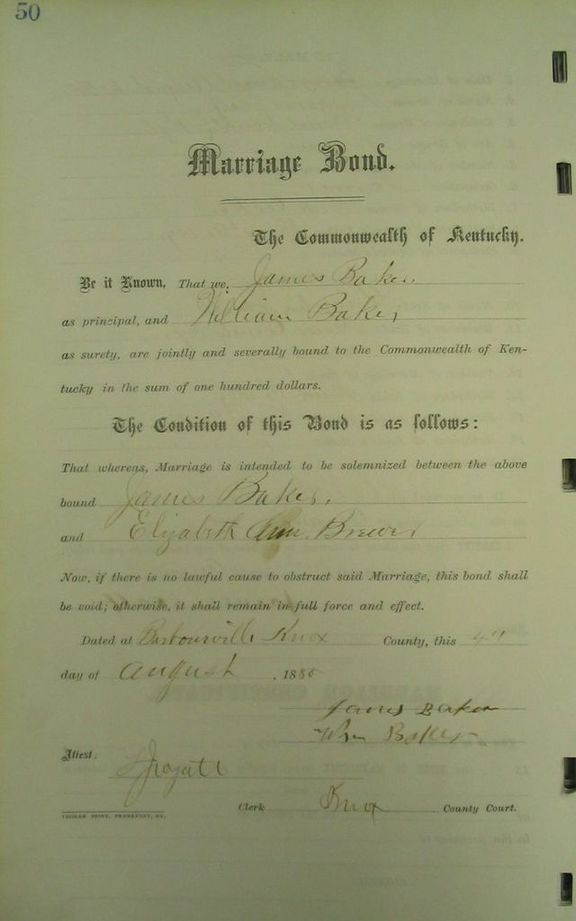 50
Marriage Bond.
The Commonwealth of Kentucky.
Be it Known, That we, James Baker
as principal, and William Baker
as surety, are jointly and severally bound to the Commonwealth of Ken-
tucky in the sum of one hundred dollars.
The Condition of this Bond is as follows:
That whereas, Marriage is intended to be solemnized between the above
bound James Baker,
and Elizabeth Ann Brewer
Now, if there is no lawful cause to obstruct said Marriage, this bond shall
be void; otherwise, it shall remain in full force and effect.
Dated at Barbourville Knox County, this
day of August, 188
James Baker
Wm Baker
Attest:
Clerk Knox County Court.